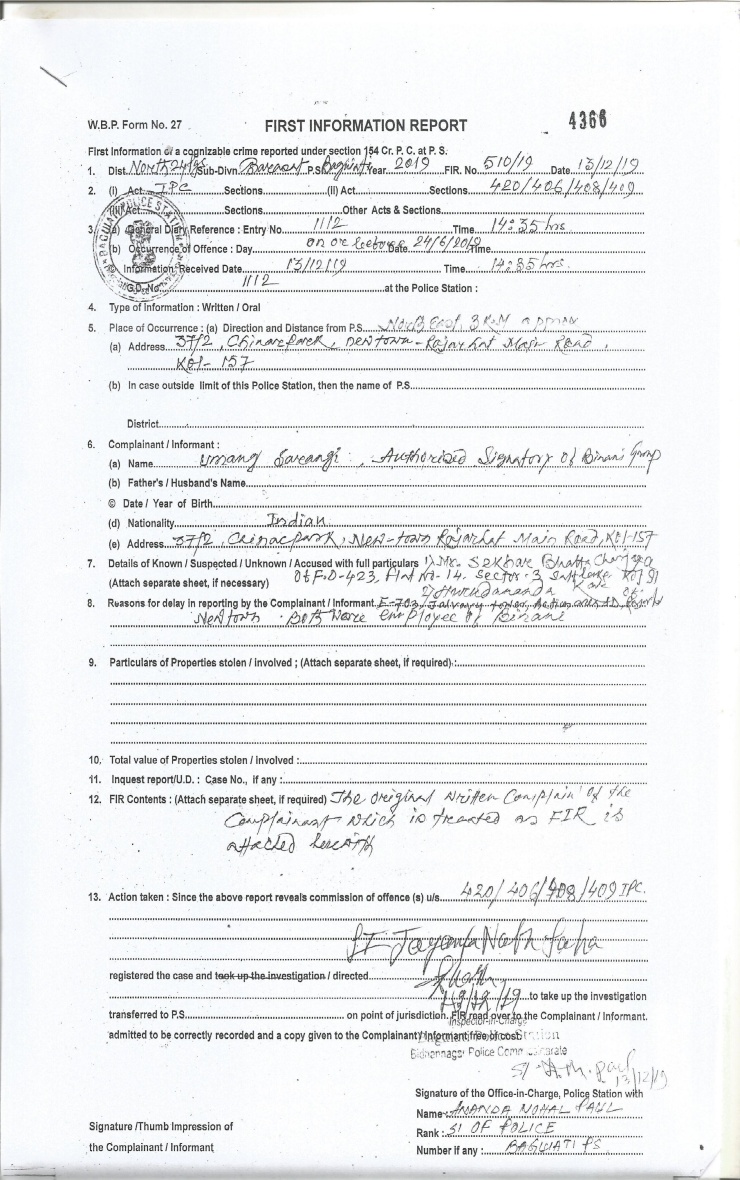 4366
W.B.P. Form No. 27 FIRST INFORMATION REPORT
First Information of a cognizable crime reported under section 154 Cr. P. C. at P. S.
1. Dist. North 24 Pgs Sub-Divn. Barasat P.S. Baguiati Year 2019 FIR. No. 510/19 Date 13/12/19
2. (i) Act IPC Sections (ii) Act Sections 420/406/408/409
Act Sections Other Acts & Sections
3. (a) General Diary Reference : Entry No. 1112 Time 14:35 hrs
(b) Occurrence of Offence : Day on or before Date 24/6/2019 Time
© Information Received Date 13/12/19 Time 14:35 hrs.
G.D. No. 1112 at the Police Station :
4. Type of Information : Written / Oral
5. Place of Occurrence : (a) Direction and Distance from P.S. North East, 3 K.M approx
(a) Address 37/2, Chinarpark, Newtown-Rajarhat Main Road,
Kol-157
(b) In case outside limit of this Police Station, then the name of P.S
District
6. Complainant / Informant :
(a) Name Umang Sarangi, Authorised Signatory of Binani Group
(b) Father's / Husband's Name
© Date / Year of Birth
(d) Nationality Indian
(e) Address 37/2, Chinarpark, New-town Rajarhat Main Road, Kol-157
7. Details of Known / Suspected / Unknown / Accused with full particulars 1) Mr. Sekhar Bhattacharyya
(Attach separate sheet, if necessary) of F.D-423, Flat No-14, Sector-3 Saltlake Kol 91
2)
8. Reasons for delay in reporting by the Complainant / Informant. E-703,
Newtown. Both were Employee of Binani
9. Particulars of Properties stolen / involved ; (Attach separate sheet, if required) :
10. Total value of Properties stolen / Involved :
11. Inquest report/U.D. : Case No., if any :
12. FIR Contents : (Attach separate sheet, if required) The original written Complain of the
Complainant which is treated as FIR is
attached herewith
13. Action taken : Since the above report reveals commission of offence (s) u/s. 420/406/408/409 IPC.
SI Jayanta Nath Saha
registered the case and took up the investigation / directed
13/12/19 to take up the investigation
transferred to P.S. on point of jurisdiction. FIR read over to the Complainant / Informant.
Inspector-in-Charge
admitted to be correctly recorded and a copy given to the Complainant/Informant free of cost.
Station
Bidhannagar Police Commissionerate
13/12/19
Signature of the Office-in-Charge, Police Station with
Name: ANANDA MOHAL PAUL
Signature /Thumb Impression of
Rank : SI OF POLICE
the Complainant / Informant
Number if any : BAGUIATI PS